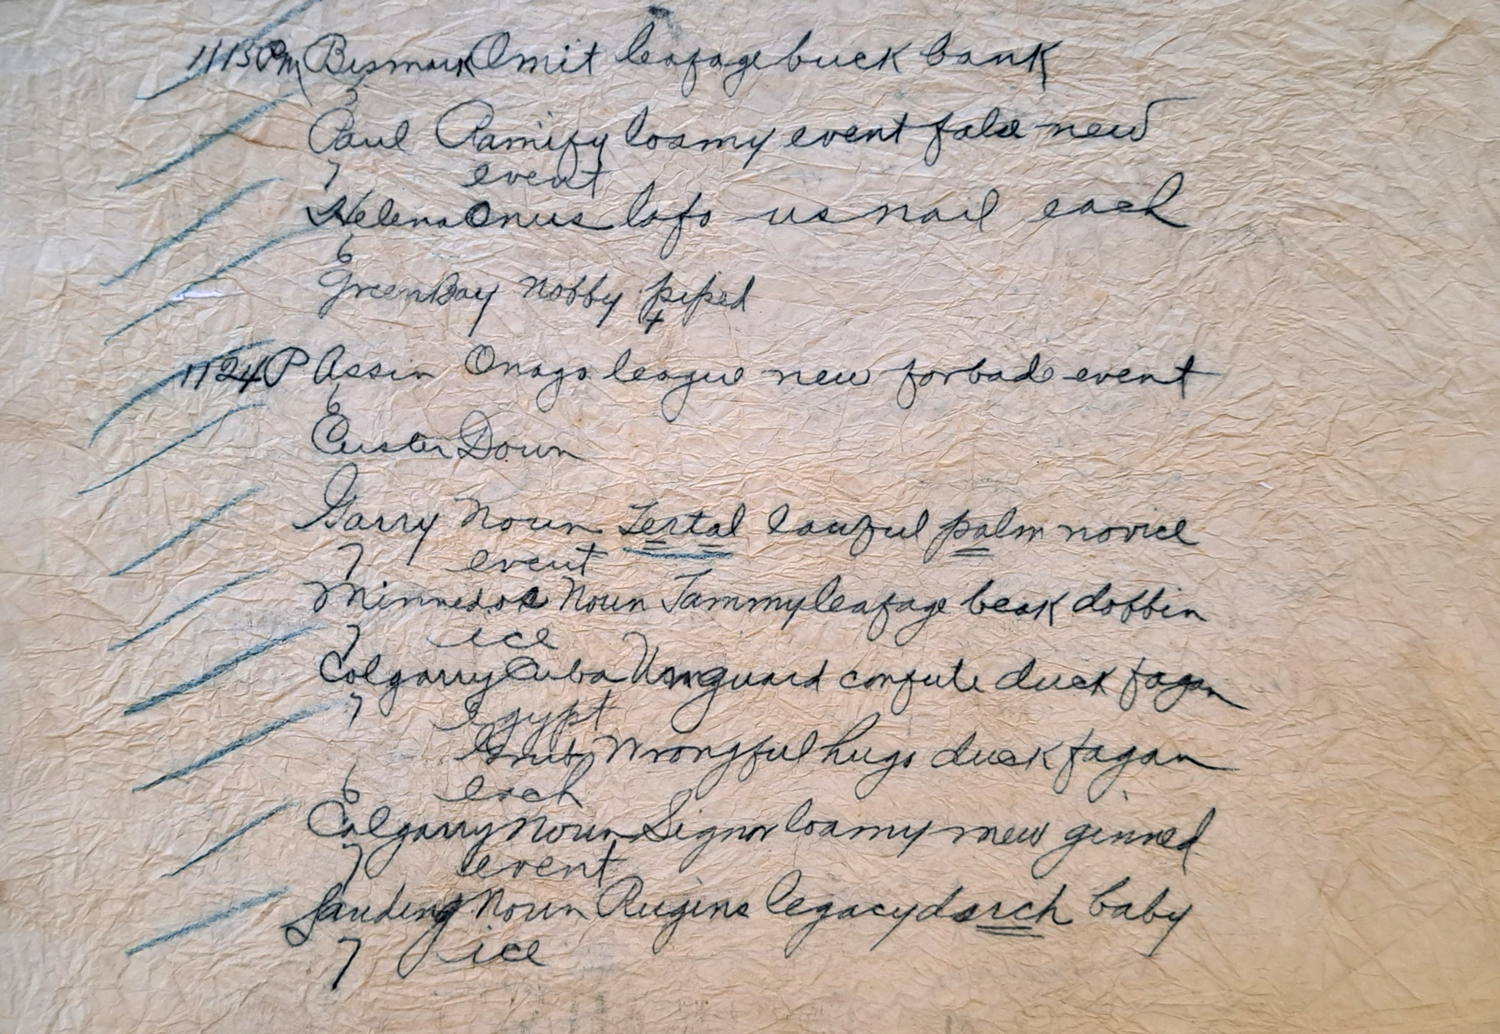 1113Pm Bismark Omit leafage buck bank
5
Paul Ramify loamy event false new
7 event
Helena Onus lofo us nail each
6
Green Bay Nobby piped
4
1124P Assin Onago league new forbade event
6
Custer Down
Garry Noun Tertal lawful palm novice
7 event
Minnedos Noun Jammy leafage beak dobbin
7 ice
Calgarry Cuba Unguard confute duck fagan
7 Egypt
Grub Wrongful hugs duck fagan
6 each
Calgarry Noun Signor loamy new ginned
7 event
Landing Noun Rugins legacy dsrch baby
7 ice